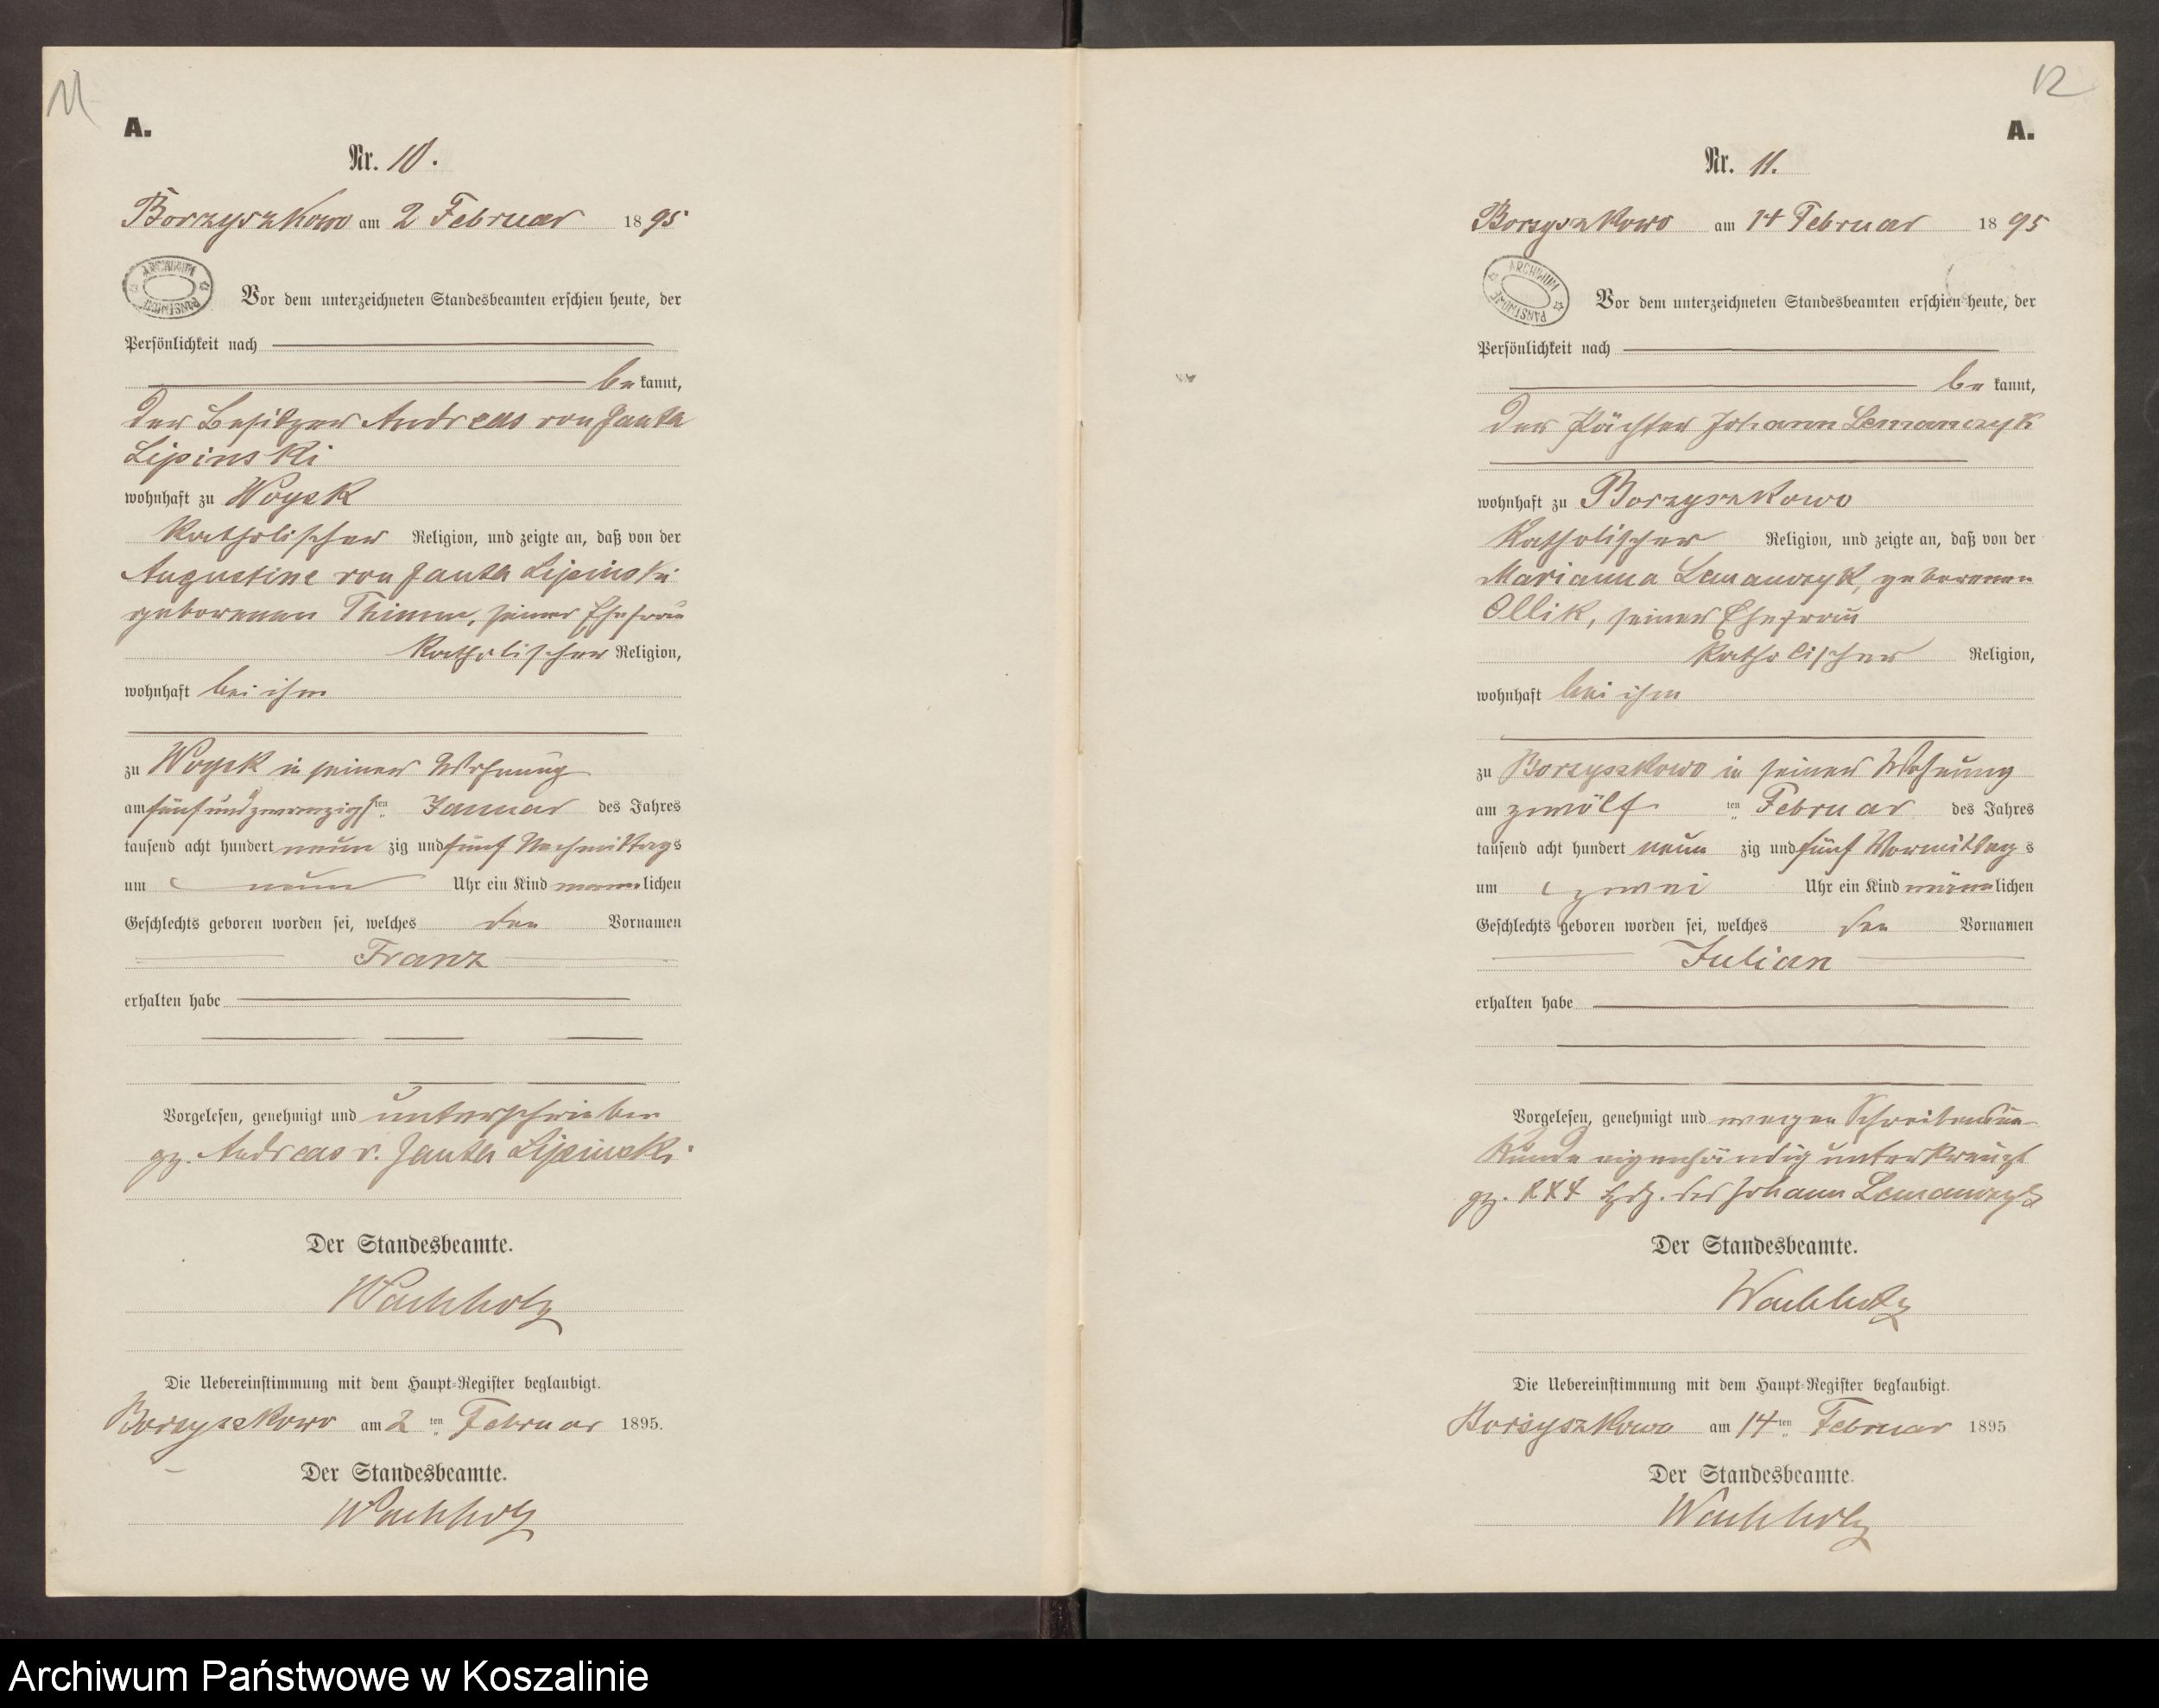 11
A.
Nr. 10.
Borzyszkowo am 2 Februar 1895
ARCHIWUM PAŃSTWOWE
Vor dem unterzeichneten Standesbeamten erschien heute, der
Persönlichkeit nach
be kannt,
der Besitzer Andreas von Janta
Lipinski
wohnhaft zu Woysk
katholischer Religion, und zeigte an, daß von der
Augustine von Janta Lipinski
geborenen Thimm, seiner Ehefrau
katholischer Religion,
wohnhaft bei ihm
zu Woysk in seiner Wohnung
am fünfundzwanzigsten Januar des Jahres
tausend acht hundert neun zig und fünf Nachmittags
um neun Uhr ein Kind männlichen
Geschlechts geboren worden sei, welches den Vornamen
Franz
erhalten habe
Vorgelesen, genehmigt und unterschrieben
gz. Andreas v. Janta Lipinski
Der Standesbeamte.
Wachholz
Die Uebereinstimmung mit dem Haupt-Register beglaubigt.
Borzyszkowo am 2ten Februar 1895.
Der Standesbeamte.
Wachholz
12
A.
Nr. 11.
Borzyszkowo am 14 Februar 1895
ARCHIWUM PAŃSTWOWE
Vor dem unterzeichneten Standesbeamten erschien heute, der
Persönlichkeit nach
be kannt,
der Pächter Johann Lemanczyk
wohnhaft zu Borzyszkowo
katholischer Religion, und zeigte an, daß von der
Marianna Lemanczyk, geborenen
Ollik, seiner Ehefrau
katholischer Religion,
wohnhaft bei ihm
zu Borzyszkowo in seiner Wohnung
am zwölf ten Februar des Jahres
tausend acht hundert neun zig und fünf Vormittags
um zwei Uhr ein Kind männlichen
Geschlechts geboren worden sei, welches den Vornamen
Julian
erhalten habe
Vorgelesen, genehmigt und wegen Schreibensun-
kunde eigenhändig unterkreuzt
gz. XXX Hdz. des Johann Lemanczyk
Der Standesbeamte.
Wachholz
Die Uebereinstimmung mit dem Haupt-Register beglaubigt.
Borzyszkowo am 14ten Februar 1895
Der Standesbeamte.
Wachholz
Archiwum Państwowe w Koszalinie